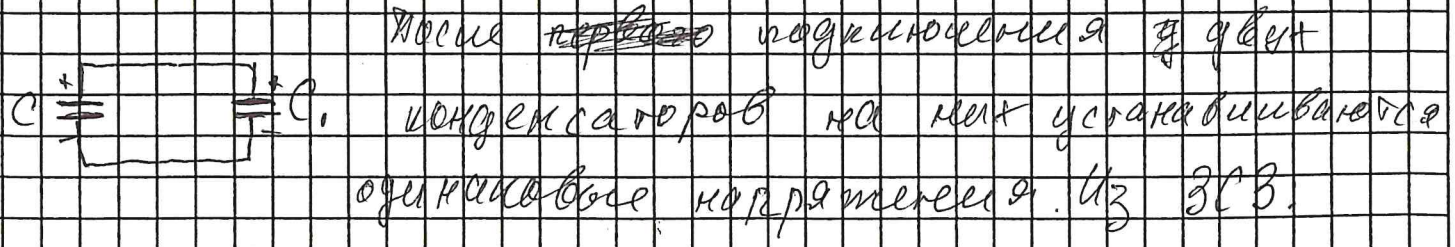 После подключения двух
C + − + − C₁ конденсаторов на них устанавливаются
одинаковые напряжения. Из ЗСЗ.